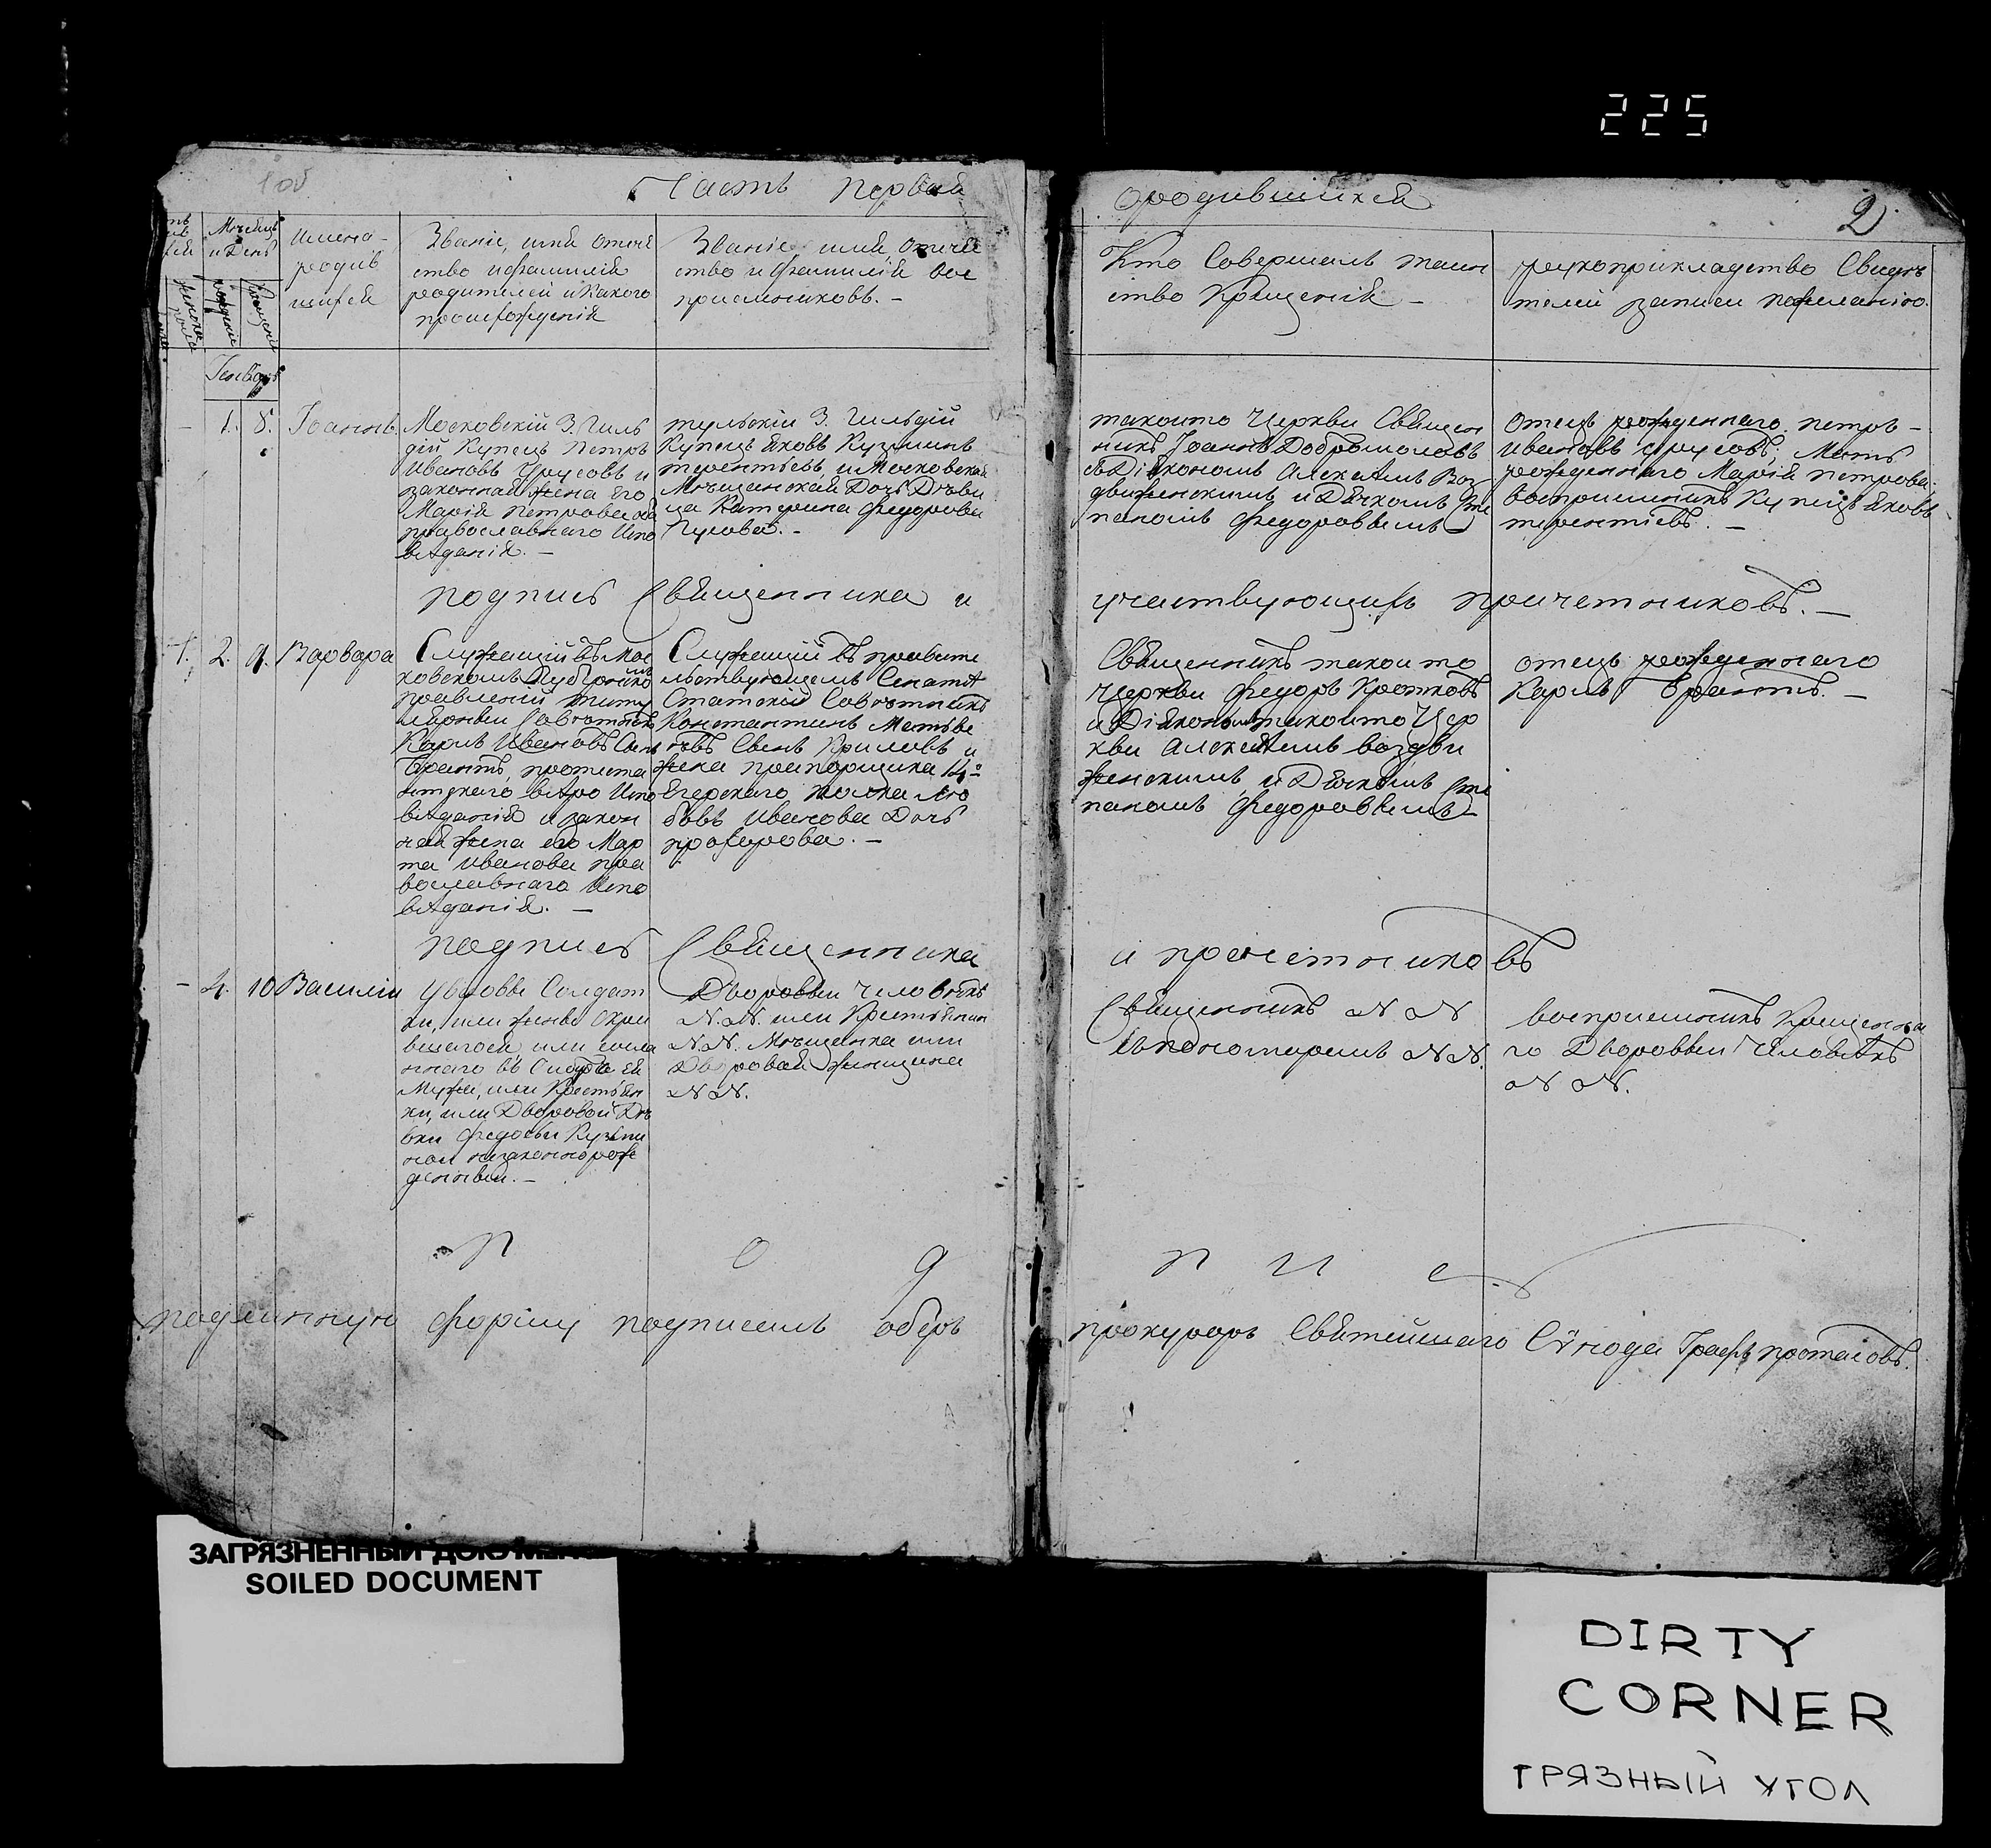 225
1 об
Часть первая
о родившихся
2
Мѣсяцъ
и День
Имена
родив
шихся
Званіе, имя отчѣ
ство и фамилія
родителей и какого
происхожденія
Званіе, имя, отчѣ
ство и фамилія вос
приемниковъ. —
Кто Совершалъ таин
ство Крещенія —
рукоприкладство Свидѣ
телей записи по желанію.
женска
пола
рожденія
Крещенія
Генварь
— 1. 8. Іоаннъ.
Московскій 3. Гиль
діи Купецъ Петръ
Ивановъ Урусовъ и
законная жена Его
Марія Петрова оба
православнаго Испо
вѣданія. —
тульскій 3. Гильдіи
Купецъ Яковъ Кузминъ
терентьевъ, и Московская
Мѣщанская Дочь Дѣви
ца Катерина Федорова
Гусова. —
такоито Церкви Священ
никъ Іоаннъ Добромоловъ
съ Діякономъ Алексѣемъ Воз
движенскимъ и Дячкомъ Сте
паномъ Федоровымъ
Отецъ рожденнаго петръ —
Ивановъ Урусовъ, Мать
рожденнаго Марія петрова,
воспріемникъ Купецъ Яковъ
терентьевъ. —
подпись Священника и
участвующихъ причетниковъ. —
1. 2. 9. Варвара
Служащій въ Мос
ковскомъ Губернском
правленіи титу
лярный Совѣтникъ
Карлъ Ивановъ Сынъ
Брантъ, протеста
нтскаго вѣро Испо
вѣданія и закон
ная жена его Мар
та Иванова пра
вославнаго Испо
вѣданія. —
Служащій въ правите
льствующемъ Сенатѣ
Статскій Совѣтникъ
Константинъ Матвѣе
евъ Сынъ Криловъ и
жена прапорщика 14го
Егерскаго полка Лю
бовь Иванова Дочь
прохорова. —
Священникъ такоито
Церкви Федоръ Кротковъ
и Діякономъ такоито Цер
кви Алексѣемъ воздви
женскимъ, и Дячкомъ Сте
паномъ Федоровымъ
отецъ рожденнаго
Карлъ Брантъ. —
подпись Священника
и причетниковъ
— 4. 10 Василій
У вдовы Солдат
ки, или жены скры
вшагося, или сосла
ннаго въ Сибирь ея
Мужа, или Крестьян
ки, или Дворовой Дѣ
вки Федосьи Кузьми
ной незаконнорож
денный. —
Дворовый человѣкъ
N. N. или Крестьянин
N. N. Мѣщанка или
Дворовая женщина
N N.
Священникъ N N
съ пономаремъ N N.
воспріемникъ Крещенна
го Дворовый Человѣкъ
N N.
п о д
п и с ь
подлинную форму подписалъ оберъ
прокуроръ Святейшаго Сѵнода Графъ протасовъ.
ЗАГРЯЗНЕННЫЙ ДОКУМЕНТ
SOILED DOCUMENT
DIRTY
CORNER
ГРЯЗНЫЙ УГОЛ